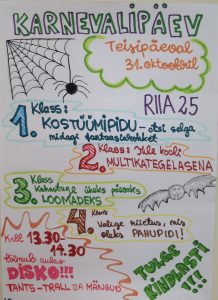 KARNEVALIPÄEV
Teisipäeval
31. oktoobril
RIIA 25
1. Klass:
KOSTÜÜMIPIDU - otsi selga
midagi fantaasiarohket
2. Klass: Üle kooli
MULTIKATEGELASENA
3. Klass
Kehastuge üheks päevaks
LOOMADEKS
4. Klass
Valige riietus, mis
oleks PAHUPIDI!
Kell 13.30-
14.30
toimub aulas
DISKO!!!
TANTS-TRALL JA MÄNGUD
TULGE
KINDLASTI
!!!